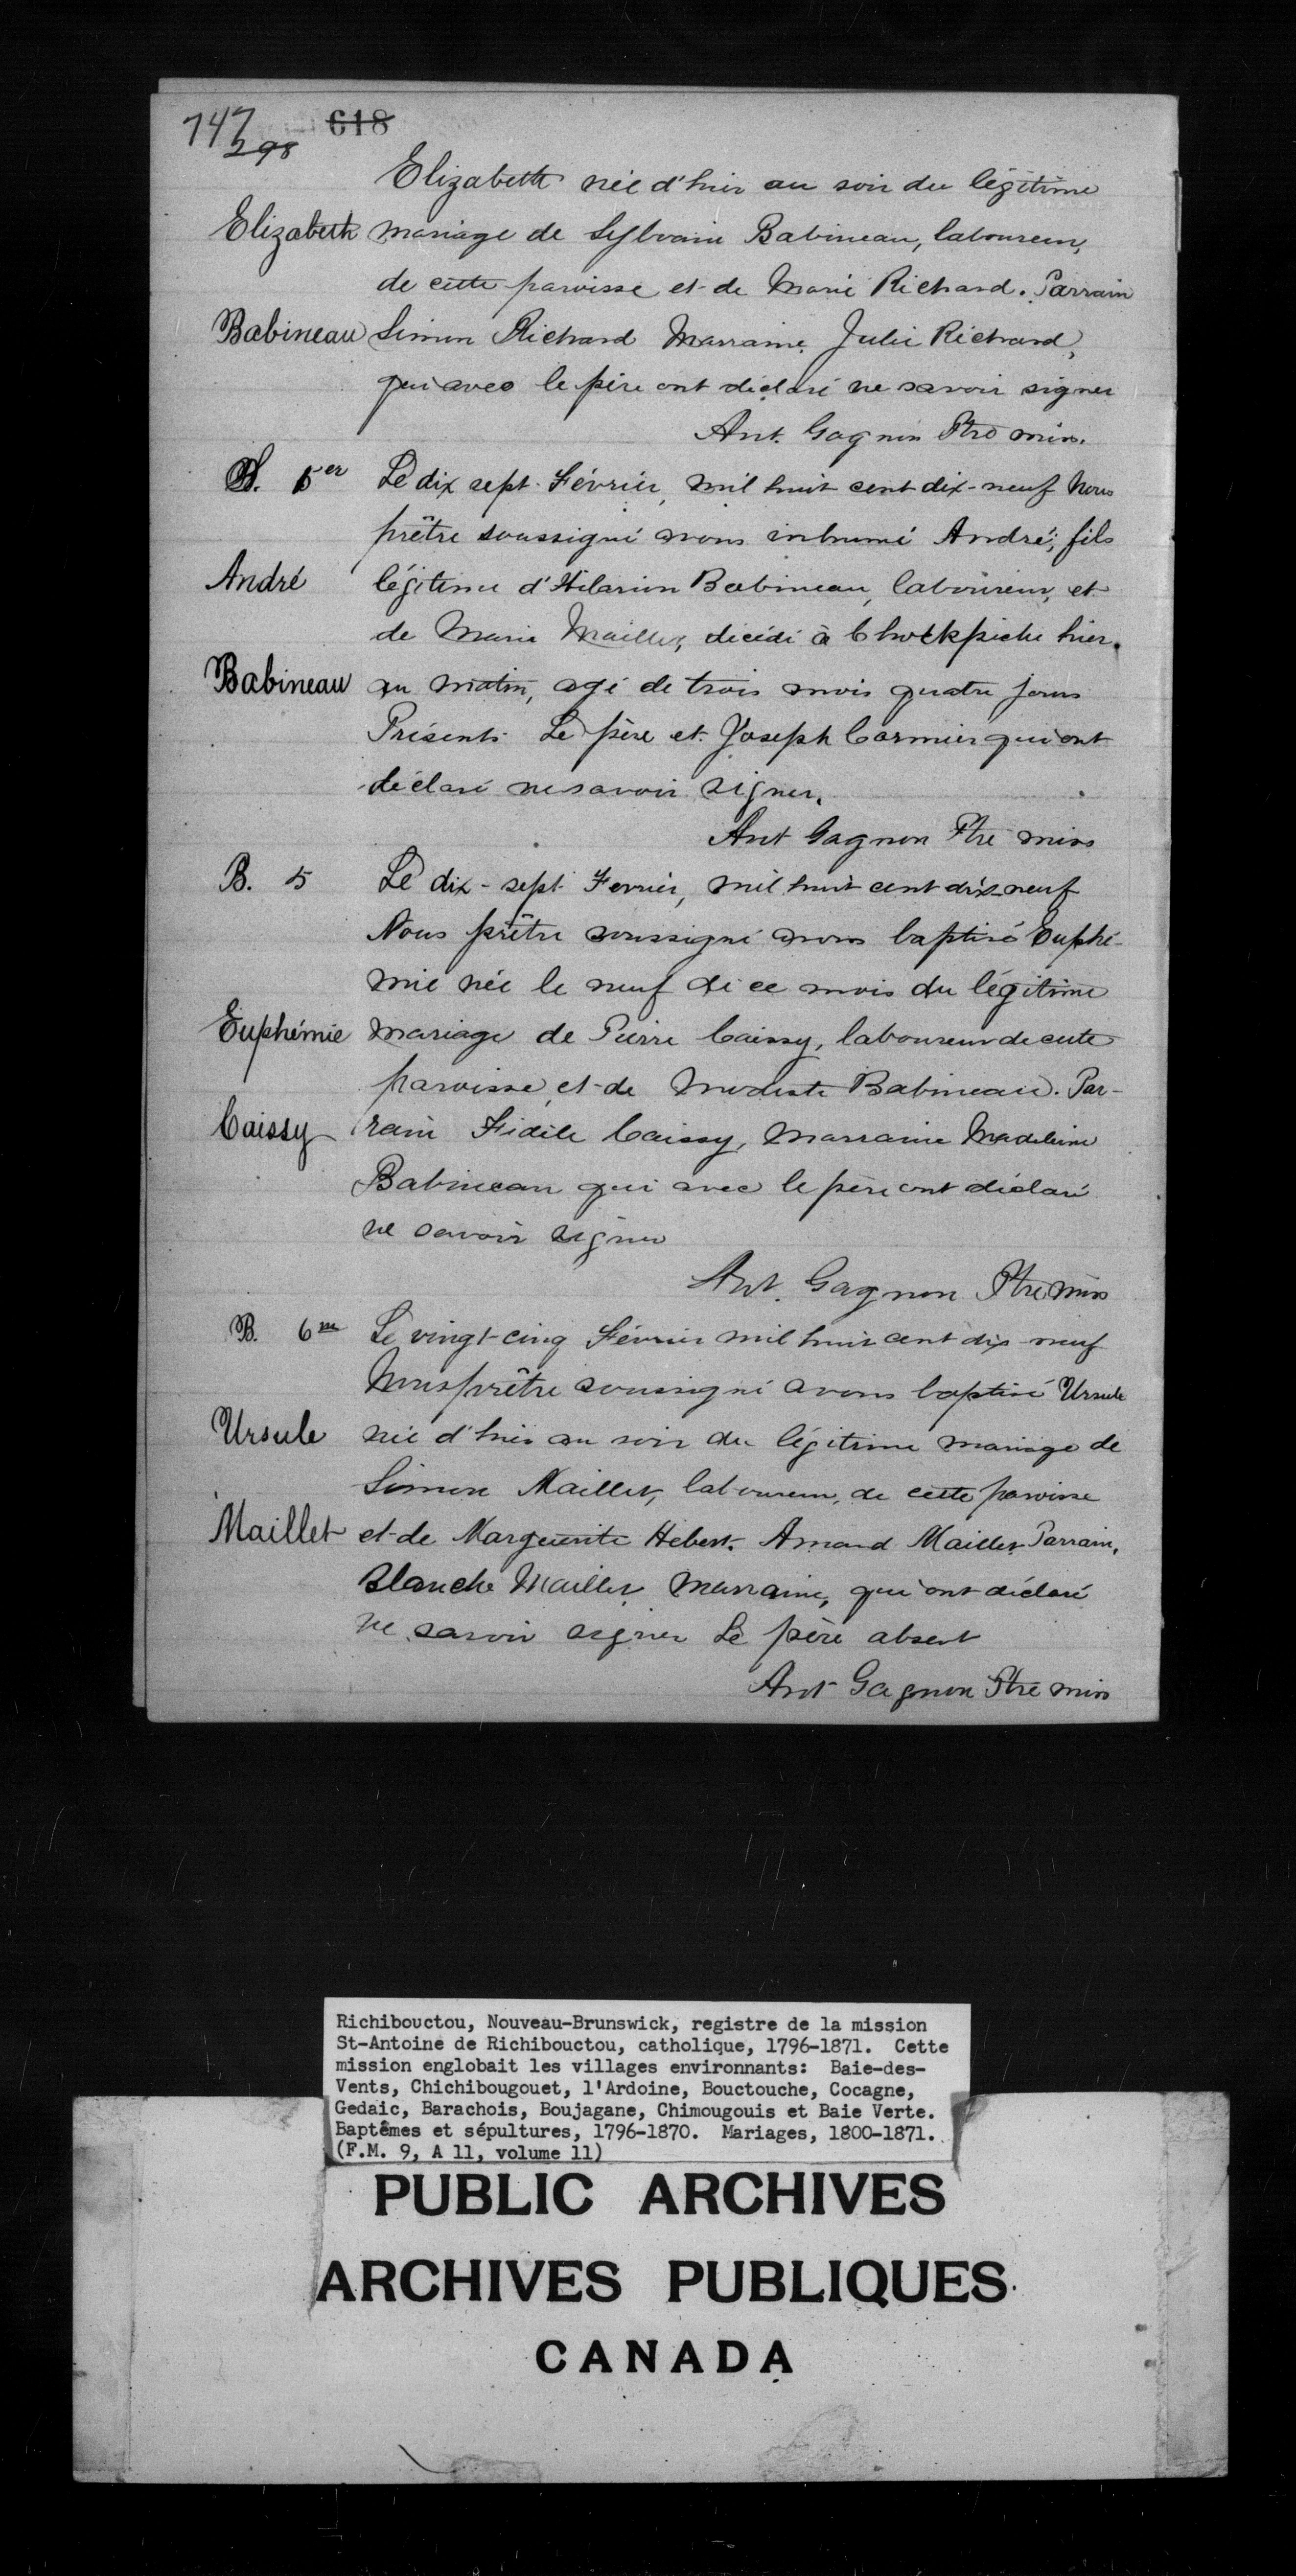 747
298
618
Elizabeth née d'hier au soir du légitime
Elizabeth mariage de Sylvain Babineau, laboureur,
de cette paroisse et de Marie Richard. Parrain
Babineau Simon Richard Marraine Julie Richard,
qui avec le père ont déclaré ne savoir signer
Ant. Gagnon Ptre miss.
S. 1er Le dix sept Février, mil huit cent dix-neuf Nous
prêtre soussigné avons inhumé André, fils
André légitime d'Hilarion Babineau, laboureur, et
de Marie Maillet, décédé à Chockpiche hier
Babineau au matin, agé de trois mois quatre jours
Présents Le père et Joseph Cormier qui ont
déclaré ne savoir signer.
Ant Gagnon Ptre miss
B. 5 Le dix-sept Fevrier, mil huit cent dix-neuf
Nous prêtre soussigné avons baptisé Euphé-
mie née le neuf de ce mois du légitime
Euphémie mariage de Pierre Caissy, laboureur de cette
paroisse, et de Modeste Babineau. Par-
Caissy rain Fidèle Caissy, Marraine Madeleine
Babineau qui avec le père ont déclaré
ne savoir signer
Ant. Gagnon Ptre miss
B. 6me Le vingt-cinq Février mil huit cent dix-neuf
Nous prêtre soussigné avons baptisé Ursule
Ursule née d'hier au soir du légitime mariage de
Simon Maillet, laboureur, de cette paroisse
Maillet et de Marguerite Hebert. Amand Maillet Parrain,
Blanche Maillet Marraine, qui ont déclaré
ne savoir signer Le père absent
Ant Gagnon Ptre miss
Richibouctou, Nouveau-Brunswick, registre de la mission
St-Antoine de Richibouctou, catholique, 1796-1871. Cette
mission englobait les villages environnants: Baie-des-
Vents, Chichibougouet, l'Ardoine, Bouctouche, Cocagne,
Gedaic, Barachois, Boujagane, Chimougouis et Baie Verte.
Baptêmes et sépultures, 1796-1870. Mariages, 1800-1871.
(F.M. 9, A 11, volume 11)
PUBLIC ARCHIVES
ARCHIVES PUBLIQUES
CANADA